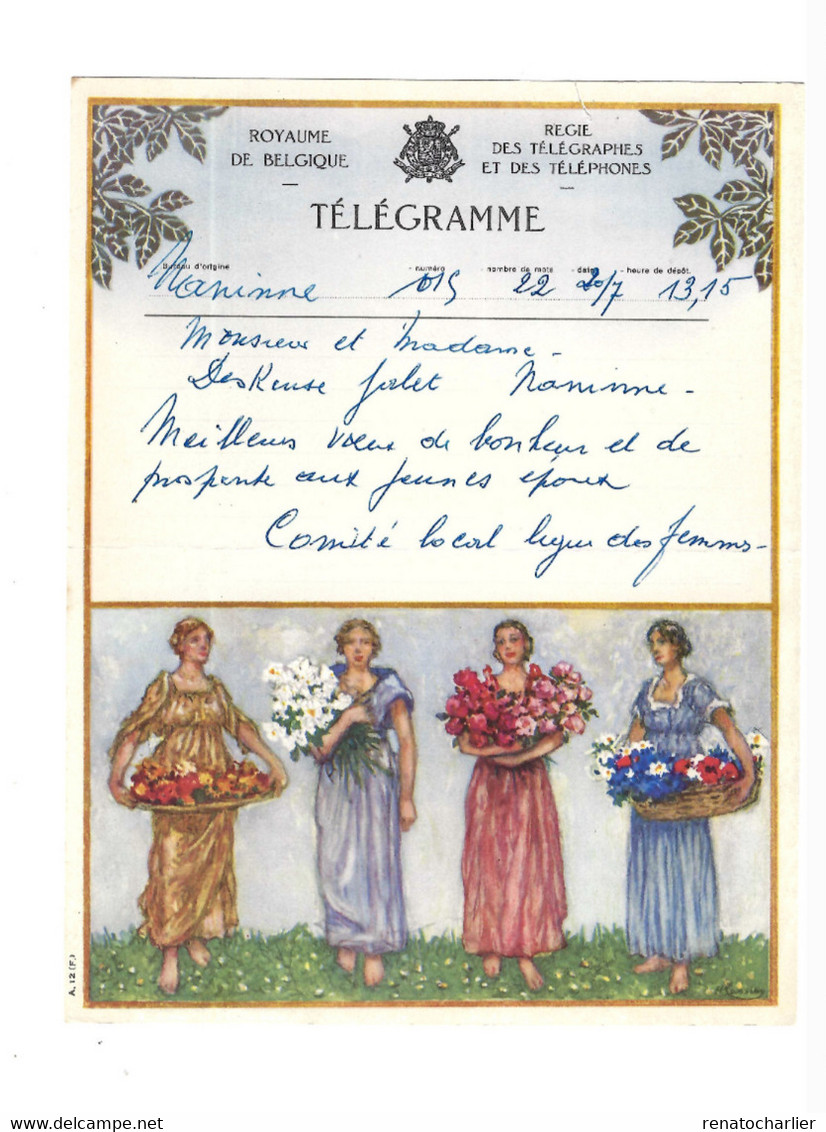 ROYAUME
DE BELGIQUE
REGIE
DES TÉLÉGRAPHES
ET DES TÉLÉPHONES
TÉLÉGRAMME
Bureau d'origine - numéro - nombre de mots - date - heure de dépôt.
Naninne 22 20/7 13,15
Monsieur et Madame -
Jalet Naninne -
Meilleurs vœux de bonheur et de
prosperite aux jeunes époux
Comité local ligue des femmes -
A. 12 (F.)
delcampe.net
renatocharlier